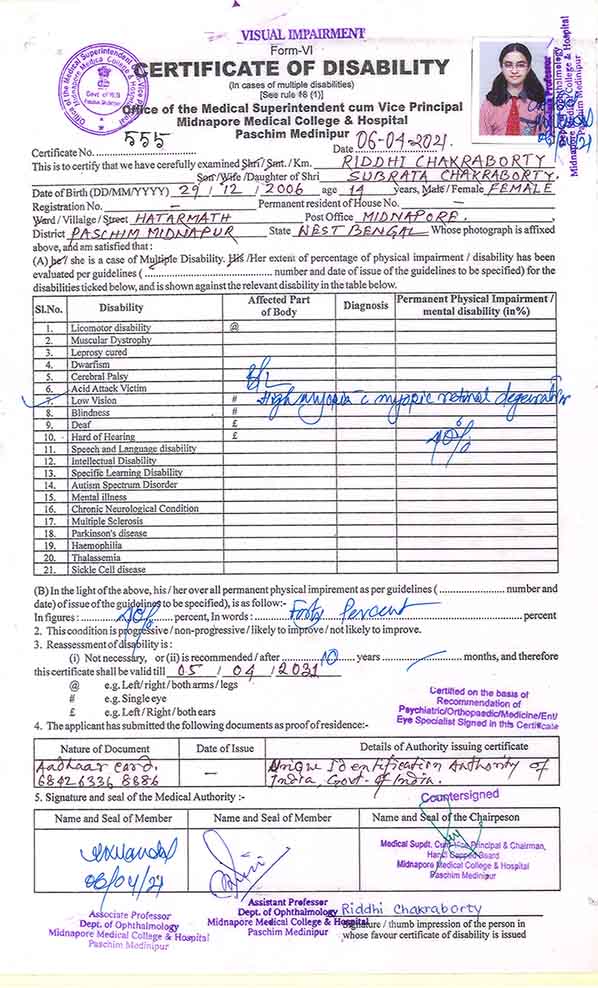 VISUAL IMPAIRMENT
Form-VI
CERTIFICATE OF DISABILITY
(In cases of multiple disabilities)
[See rule 18 (1)]
Office of the Medical Superintendent cum Vice Principal
Midnapore Medical College & Hospital
Paschim Medinipur
Office of the Medical Superintendent
Govt of W.B
Certificate No. 555 Date 06-04-2021.
This is to certify that we have cerefully examined Shri / Smt. / Km. RIDDHI CHAKRABORTY
Son/Wife /Daughter of Shri SUBRATA CHAKRABORTY.
Date of Birth (DD/MM/YYYY) 29 / 12 / 2006 age 14 years, Male/ Female FEMALE
Registration No. — Permanent resident of House No. —
Ward / Villalge / Street HATARMATH Post Office MIDNAPORE.
District PASCHIM MIDNAPUR State WEST BENGAL Whose photograph is affixed
above, and am satisfied that :
(A) he/ she is a case of Multiple Disability. His /Her extent of percentage of physical impairment / disability has been
evaluated per guidelines ( .......... number and date of issue of the guidelines to be specified) for the
disabilities ticked below, and is shown against the relevant disability in the table below.
Sl.No. Disability Affected Part of Body Diagnosis Permanent Physical Impairment / mental disability (in%)
1. Licomotor disability @
2. Muscular Dystrophy
3. Leprosy cured
4. Dwarfism
5. Cerebral Palsy
6. Acid Attack Victim
7. Low Vision # High myopia c myopic retinal degeneration
8. Blindness #
9. Deaf £
10. Hard of Hearing £ 40%
11. Speech and Language disability
12. Intellectual Disability
13. Specific Learning Disability
14. Autism Spectrum Disorder
15. Mental illness
16. Chronic Neurological Condition
17. Multiple Sclerosis
18. Parkinson's disease
19. Haemophilia
20. Thalassemia
21. Sickle Cell disease
(B) In the light of the above, his / her over all permanent physical impirement as per guidelines ( .......... number and
date) of issue of the guidelines to be specified), is as follow:-
In figures : 40% percent, In words : Forty Percent percent
2. This condition is progressive / non-progressive / likely to improve / not likely to improve.
3. Reassessment of disability is :
(i) Not necessary, or (ii) is recommended / after 10 years — months, and therefore
this certificate shall be valid till 05 / 04 / 2031
@ e.g. Left/ right / both arms / legs
# e.g. Single eye
£ e.g. Left / Right / both ears
Certified on the basis of
Recommendation of
Psychiatric/Orthopaedic/Medicine/Ent/
Eye Specialist Signed in this Certificate
4. The applicant has submitted the following documents as proof of residence:-
Nature of Document Date of Issue Details of Authority issuing certificate
Aadhaar card. — Unique Identification Authority of
6842 6336 8886 India, Govt. of India.
5. Signature and seal of the Medical Authority :-
Countersigned
Name and Seal of Member Name and Seal of Member Name and Seal of the Chairpeson
06/04/21
Medical Supdt. Cum Vice Principal & Chairman,
Handicapped Board
Midnapore Medical College & Hospital
Paschim Medinipur
Associate Professor
Dept. of Ophthalmology
Midnapore Medical College & Hospital
Paschim Medinipur
Assistant Professor
Dept. of Ophthalmology
Midnapore Medical College & Hospital
Paschim Medinipur
Riddhi Chakraborty
Signature / thumb impression of the person in
whose favour certificate of disability is issued